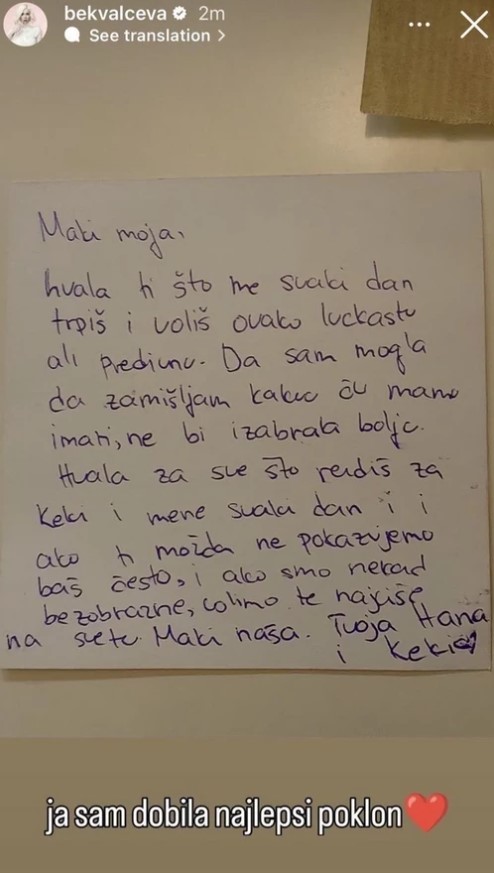 bekvalceva 2m
See translation >
Maki moja,
hvala ti što me svaki dan
trpiš i voliš ovako luckastu
ali predivnu. Da sam mogla
da zamišljam kakvu ću mamu
imati, ne bi izabrala bolje.
Hvala za sve što radiš za
Keki i mene svaki dan i i
ako ti možda ne pokazujemo
baš često, i ako smo nekad
bezobrazne, volimo te najviše
na svetu Maki naša. Tvoja Hana
i Keki
ja sam dobila najlepsi poklon